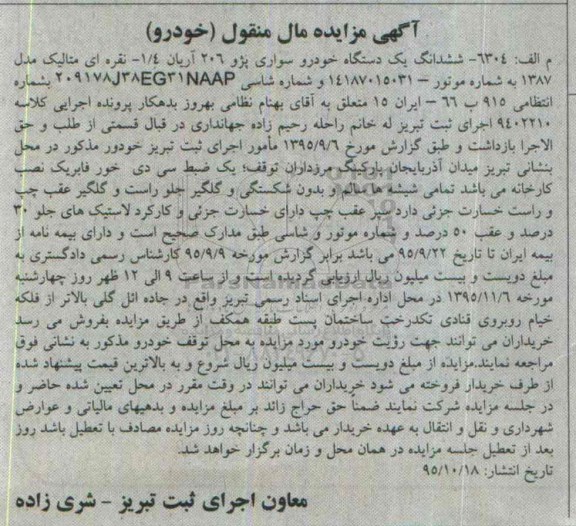 آگهی مزایده مال منقول (خودرو)
م الف: ۶۳۰۴- ششدانگ یک دستگاه خودرو سواری پژو ۲۰۶ آریان ۱/۴- نقره ای متالیک مدل
۱۳۸۷ به شماره موتور – ۱۴۱۸۷۰۱۵۰۳۱ و شماره شاسی ۲۰۹۱۷۸J۳۸EG۳۱NAAP بشماره
انتظامی ۹۱۵ ب ۶۶ – ایران ۱۵ متعلق به آقای بهنام نظامی بهروز بدهکار پرونده اجرایی کلاسه
۹۴۰۲۲۱۰ اجرای ثبت تبریز له خانم راحله رحیم زاده جهانداری در قبال قسمتی از طلب و حق
الاجرا بازداشت و طبق گزارش مورخ ۱۳۹۵/۹/۶ مأمور اجرای ثبت تبریز خودور مذکور در محل
بنشانی تبریز میدان آذربایجان پارکینگ مرزداران توقف؛ یک ضبط سی دی خور فابریک نصب
کارخانه می باشد تمامی شیشه ها سالم و بدون شکستگی و گلگیر جلو راست و گلگیر عقب چپ
و راست خسارت جزئی دارد سپر عقب چپ دارای خسارت جزئی و کارکرد لاستیک های جلو ۳۰
درصد و عقب ۵۰ درصد و شماره موتور و شاسی طبق مدارک صحیح است و دارای بیمه نامه از
بیمه ایران تا تاریخ ۹۵/۹/۲۲ می باشد برابر گزارش مورخه ۹۵/۹/۹ کارشناس رسمی دادگستری به
مبلغ دویست و بیست میلیون ریال ارزیابی گردیده است و از ساعت ۹ الی ۱۲ ظهر روز چهارشنبه
مورخه ۱۳۹۵/۱۱/۶ در محل اداره اجرای اسناد رسمی تبریز واقع در جاده ائل گلی بالاتر از فلکه
خیام روبروی قنادی تکدرخت ساختمان بست طبقه همکف از طریق مزایده بفروش می رسد
خریداران می توانند جهت رؤیت خودرو مورد مزایده به محل توقف خودرو مذکور به نشانی فوق
مراجعه نمایند.مزایده از مبلغ دویست و بیست میلیون ریال شروع و به بالاترین قیمت پیشنهاد شده
از طرف خریدار فروخته می شود خریداران می توانند در وقت مقرر در محل تعیین شده حاضر و
در جلسه مزایده شرکت نمایند ضمناً حق حراج زائد بر مبلغ مزایده و بدهیهای مالیاتی و عوارض
شهرداری و نقل و انتقال به عهده خریدار می باشد و چنانچه روز مزایده مصادف با تعطیل باشد روز
بعد از تعطیل جلسه مزایده در همان محل و زمان برگزار خواهد شد.
تاریخ انتشار: ۹۵/۱۰/۱۸
معاون اجرای ثبت تبریز - شری زاده